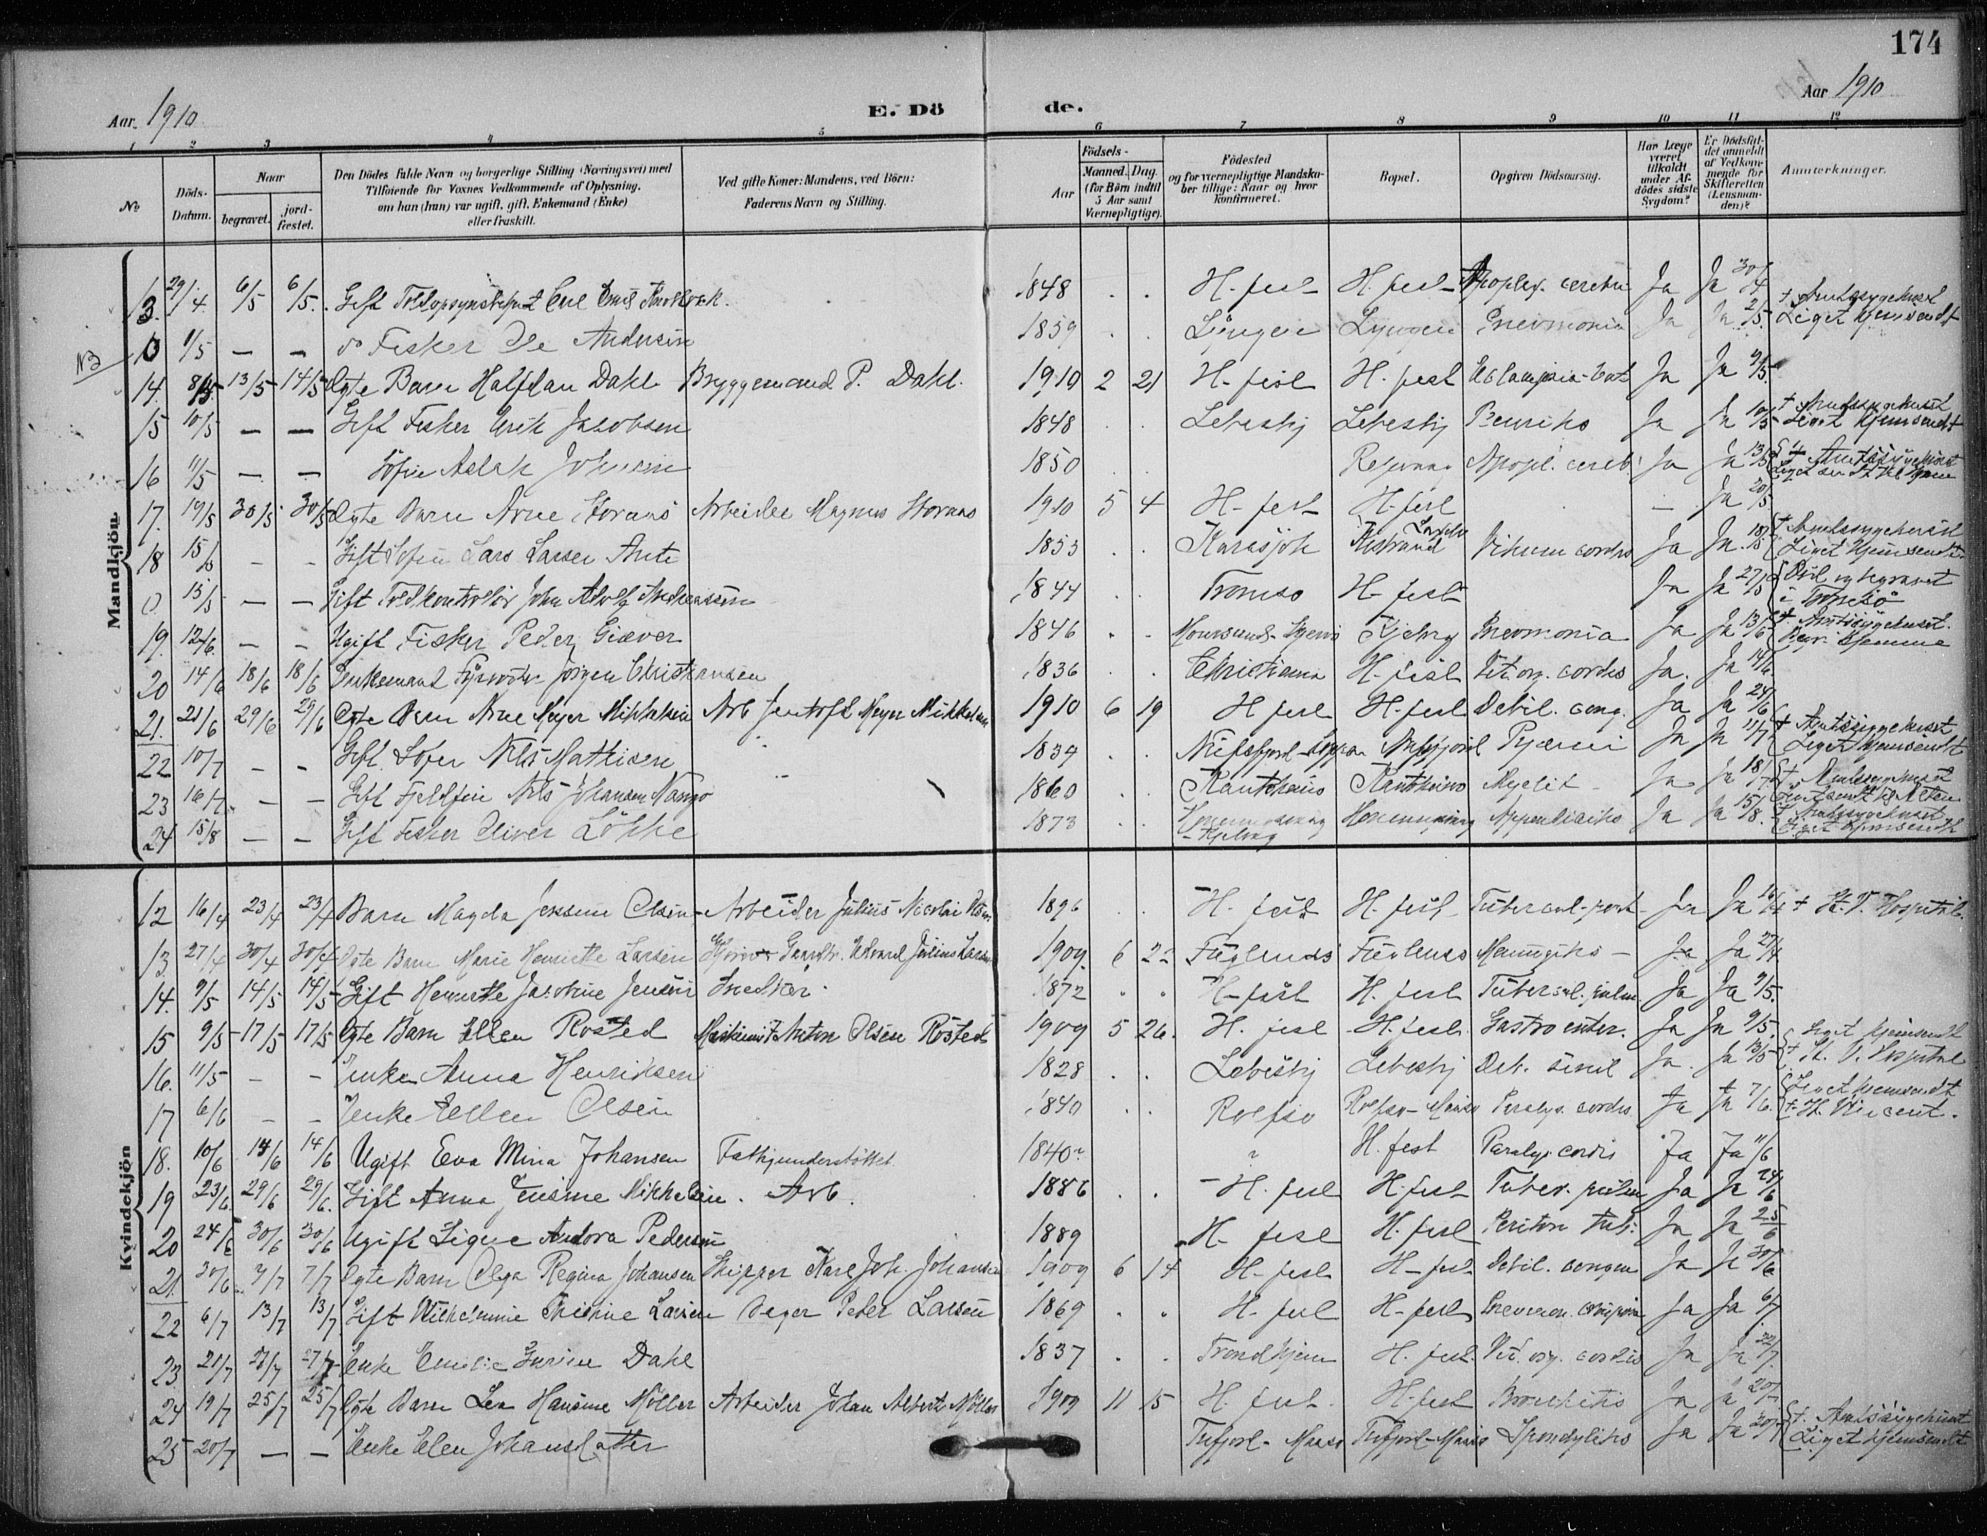 174
Aar 1910
E. Dö
de.
Aar 1910
1 2 3 4 5 6 7 8 9 10 11 12
No
Döds-Datum.
Naar
begravet.
jord-fæstet.
Den Dödes fulde Navn og borgerlige Stilling (Næringsvei) med
Tilföiende for Voxnes Vedkommende af Oplysning,
om han (hun) var ugift, gift, Enkemand (Enke)
eller fraskilt.
Ved gifte Koner: Mandens, ved Börn:
Faderens Navn og Stilling.
Födsels-
Aar
Maaned. Dag.
(for Börn indtil 5 Aar samt Værnepligtige).
Födested
og for værnepligtige Mandskaber tillige: Naar og hvor konfirmeret.
Bopæl.
Opgiven Dödsaarsag.
Har Læge været tilkaldt under Afdödes sidste Sygdom?
Er Dödsfaldet anmeldt af Vedkommende for Skifteretten (Lensmanden)?
Anmærkninger.
Mandkjön
13. 29/4 6/5 6/5. Gift Carl Emil 1848 . . H-fest H. fest Apoplex. cerebri Ja Ja 30/4
NB 1/5 — — do Fisker Ole Andersen 1859 . . Lyngen Lyngen Pneumonia Ja Ja 2/5. † Amtssygehuset Liget hjemsendt
14. 8/5 13/5 14/5 Ægte Barn Halfdan Dahl Bryggemand P. Dahl. 1910 2 21 H-fest H. fest Ja Ja 9/5.
15 10/5 — — Gift Fisker Erik Jacobsen 1848 . . Lebesby Lebesby Ja Ja 10/5 † Amtssygehuset Liget hjemsendt
16 11/5 — — Aslak Johnsen 1850 Apopl. cereb. Ja Ja 13/5 † Amtssygehuset
17. 19/5 30/5 30/5 Ægte Barn Arne Arbeider Magnus 1910 5 4 H-fest H-fest — Ja 20/5
18 15/5 — — Gift Lars Larsen Ante 1853 . . Karasjok Kistrand Vitium cordis Ja Ja 18/5 † Amtssygehuset Liget hjemsendt
0 13/5 — — Gift Toldkontrollör John Adolf Andreassen 1844 . . Tromsö H-fest Ja Ja 27/5 og begravet i Tromsö
19. 12/6. — — Ugift Fisker Peder Giæver 1846 . . Pneumonia Ja Ja 13/6 † Amtssygehuset. hjemme
20 14/6 18/6 18/6 Enkemand Jörgen Christiansen 1836 . . Christiania H-fest Vit. org. cordis Ja. Ja 14/6
21. 21/6 29/6 29/6 Ægte Barn Arne Meyer Mikkelsen Arb. Jentoft Meyer Mikkelsen 1910 6 19 H fest H-fest Debil. cong. Ja Ja 24/6
22 10/7 — — Gift Nils Mathisen 1834 . . Ja Ja 11/7 † Amtssygehuset Liget hjemsendt
23 16/7. — — Gift Fjeldfin Nils Johansen Nango 1860 . . Kautokeino Kautokeino Myelit Ja Ja 18/7 † Amtssygehuset Liget sendt til Alten
24 15/8 — — Gift Fisker Oliver Lökke 1873 . . Honningsvaag Kjelvig Honningsvaag Appendicitis Ja Ja 15/8. † Amtssygehuset Liget hjemsendt
Kvindekjön
12 16/4 23/4 23/4 Barn Magda Jensine Olsen Arbeider Julius Nicolai Olsen 1896 . . H. fest H. fest Ja Ja 16/4 † St. V. Hospital.
13. 27/4 30/4 30/4 Ægte Barn Marie Henriette Larsen Edvard Julius Larsen 1909 6 22 Fuglenes Fuglenes Meningitis — Ja Ja 27/4
14. 9/5 14/5 14/5 Gift Henriette Jacobine Jensen Snedker. 1872 . . H-fest H. fest Tubercul. pulm. Ja Ja 9/5.
15 9/5 17/5 17/5 Ægte Barn Ellen Rosted Maskinist Anton Olsen Rosted 1909 5 26. H. fest H. fest. Gastro enter. Ja Ja 9/5
16. 11/5 — — Enke Anna Henriksen 1828 . . Lebesby Lebesby Deb. senil Ja. Ja 13/5 Liget hjemsendt † St. V. Hospital
17 6/6 — — Enke Ellen Olsen 1840 . . Rolfsö Rolfsö-Maasö Paralys. cordis Ja Ja 7/6. Liget hjemsendt † St. Vincent.
18. 10/6 14/6 14/6 Ugift Eva Mina Johansen Fattigunderstöttet 1840? ? H. fest Paralys. cordis Ja Ja 11/6
19 23/6 29/6 29/6. Gift Anna Jensine Mikkelsen. Arb. 1886 . . H. fest H. fest Tuber. pulm Ja Ja 24/6
20 24/6 30/6 30/6 Ugift Signe Andora Pedersen 1889 H- fest H. fest Periton tub. Ja Ja 25/6
21. 30/6 7/7 7/7 Ægte Barn Olga Regina Johansen Skipper Karl Joh. Johansen 1909 6 14 H-fest H-fest Debil. congen Ja Ja 30/6
22 6/7 13/7 13/7 Gift Wilhelmine Larsen Peter Larsen 1869 . . H. fest H-fest Ja Ja 6/7
23 21/7 27/7 27/7 Enke Emilie Dahl 1837 . . Trondhjem H. fest. Vit. org. cordis Ja Ja 22/7.
24 19/7 25/7 25/7 Ægte Barn Lea Hansine Möller Arbeider Johan Albert Möller 1909 11 15 H. fest. H. fest Bronchitis Ja Ja 20/7
25 20/7 — — Enke Elen Johansdatter Tufjord-Maasö Tufjord-Maasö Spondylitis Ja Ja 30/7 † Amtssygehuset Liget hjemsendt